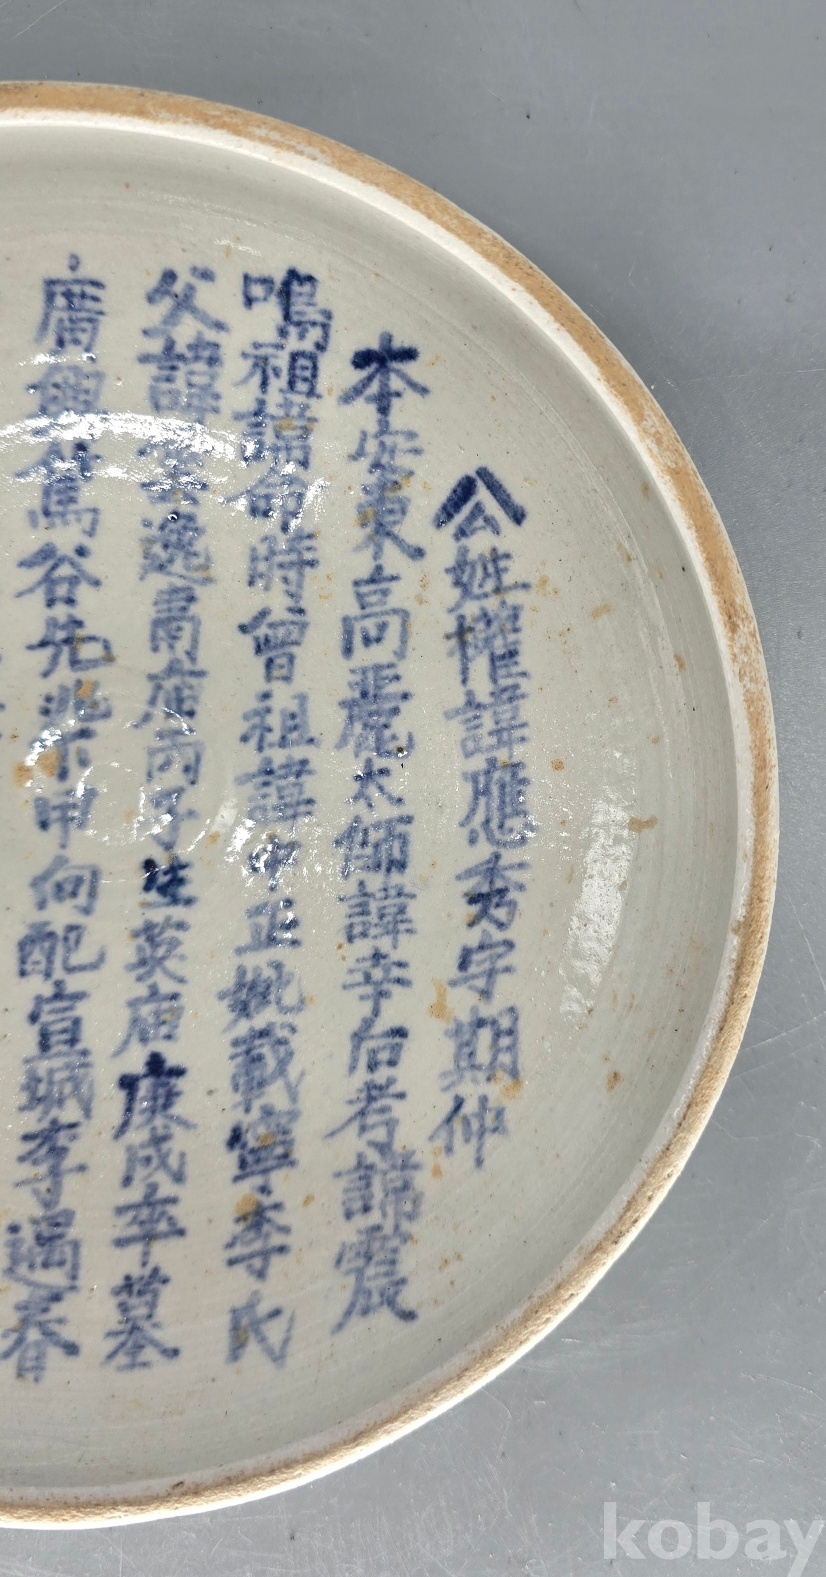 公姓權諱應秀字期仲
本安東高麗太師諱幸后考諱震
鳴祖諱命時曾祖諱中正妣載寧李氏
父諱 逸肅庙丙子生英庙庚戌卒墓
廣 谷先 甲向配宣城李遇春
kobay